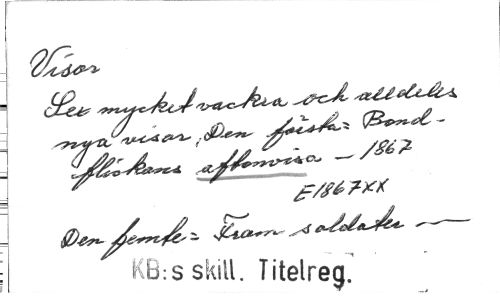 Visor
Sex mycket vackra och alldeles
nya visor. Den första = Bond-
flickans aftonvisa — 1867
E1867xx
Den femte = Fram soldater —
KB:s skill. Titelreg.